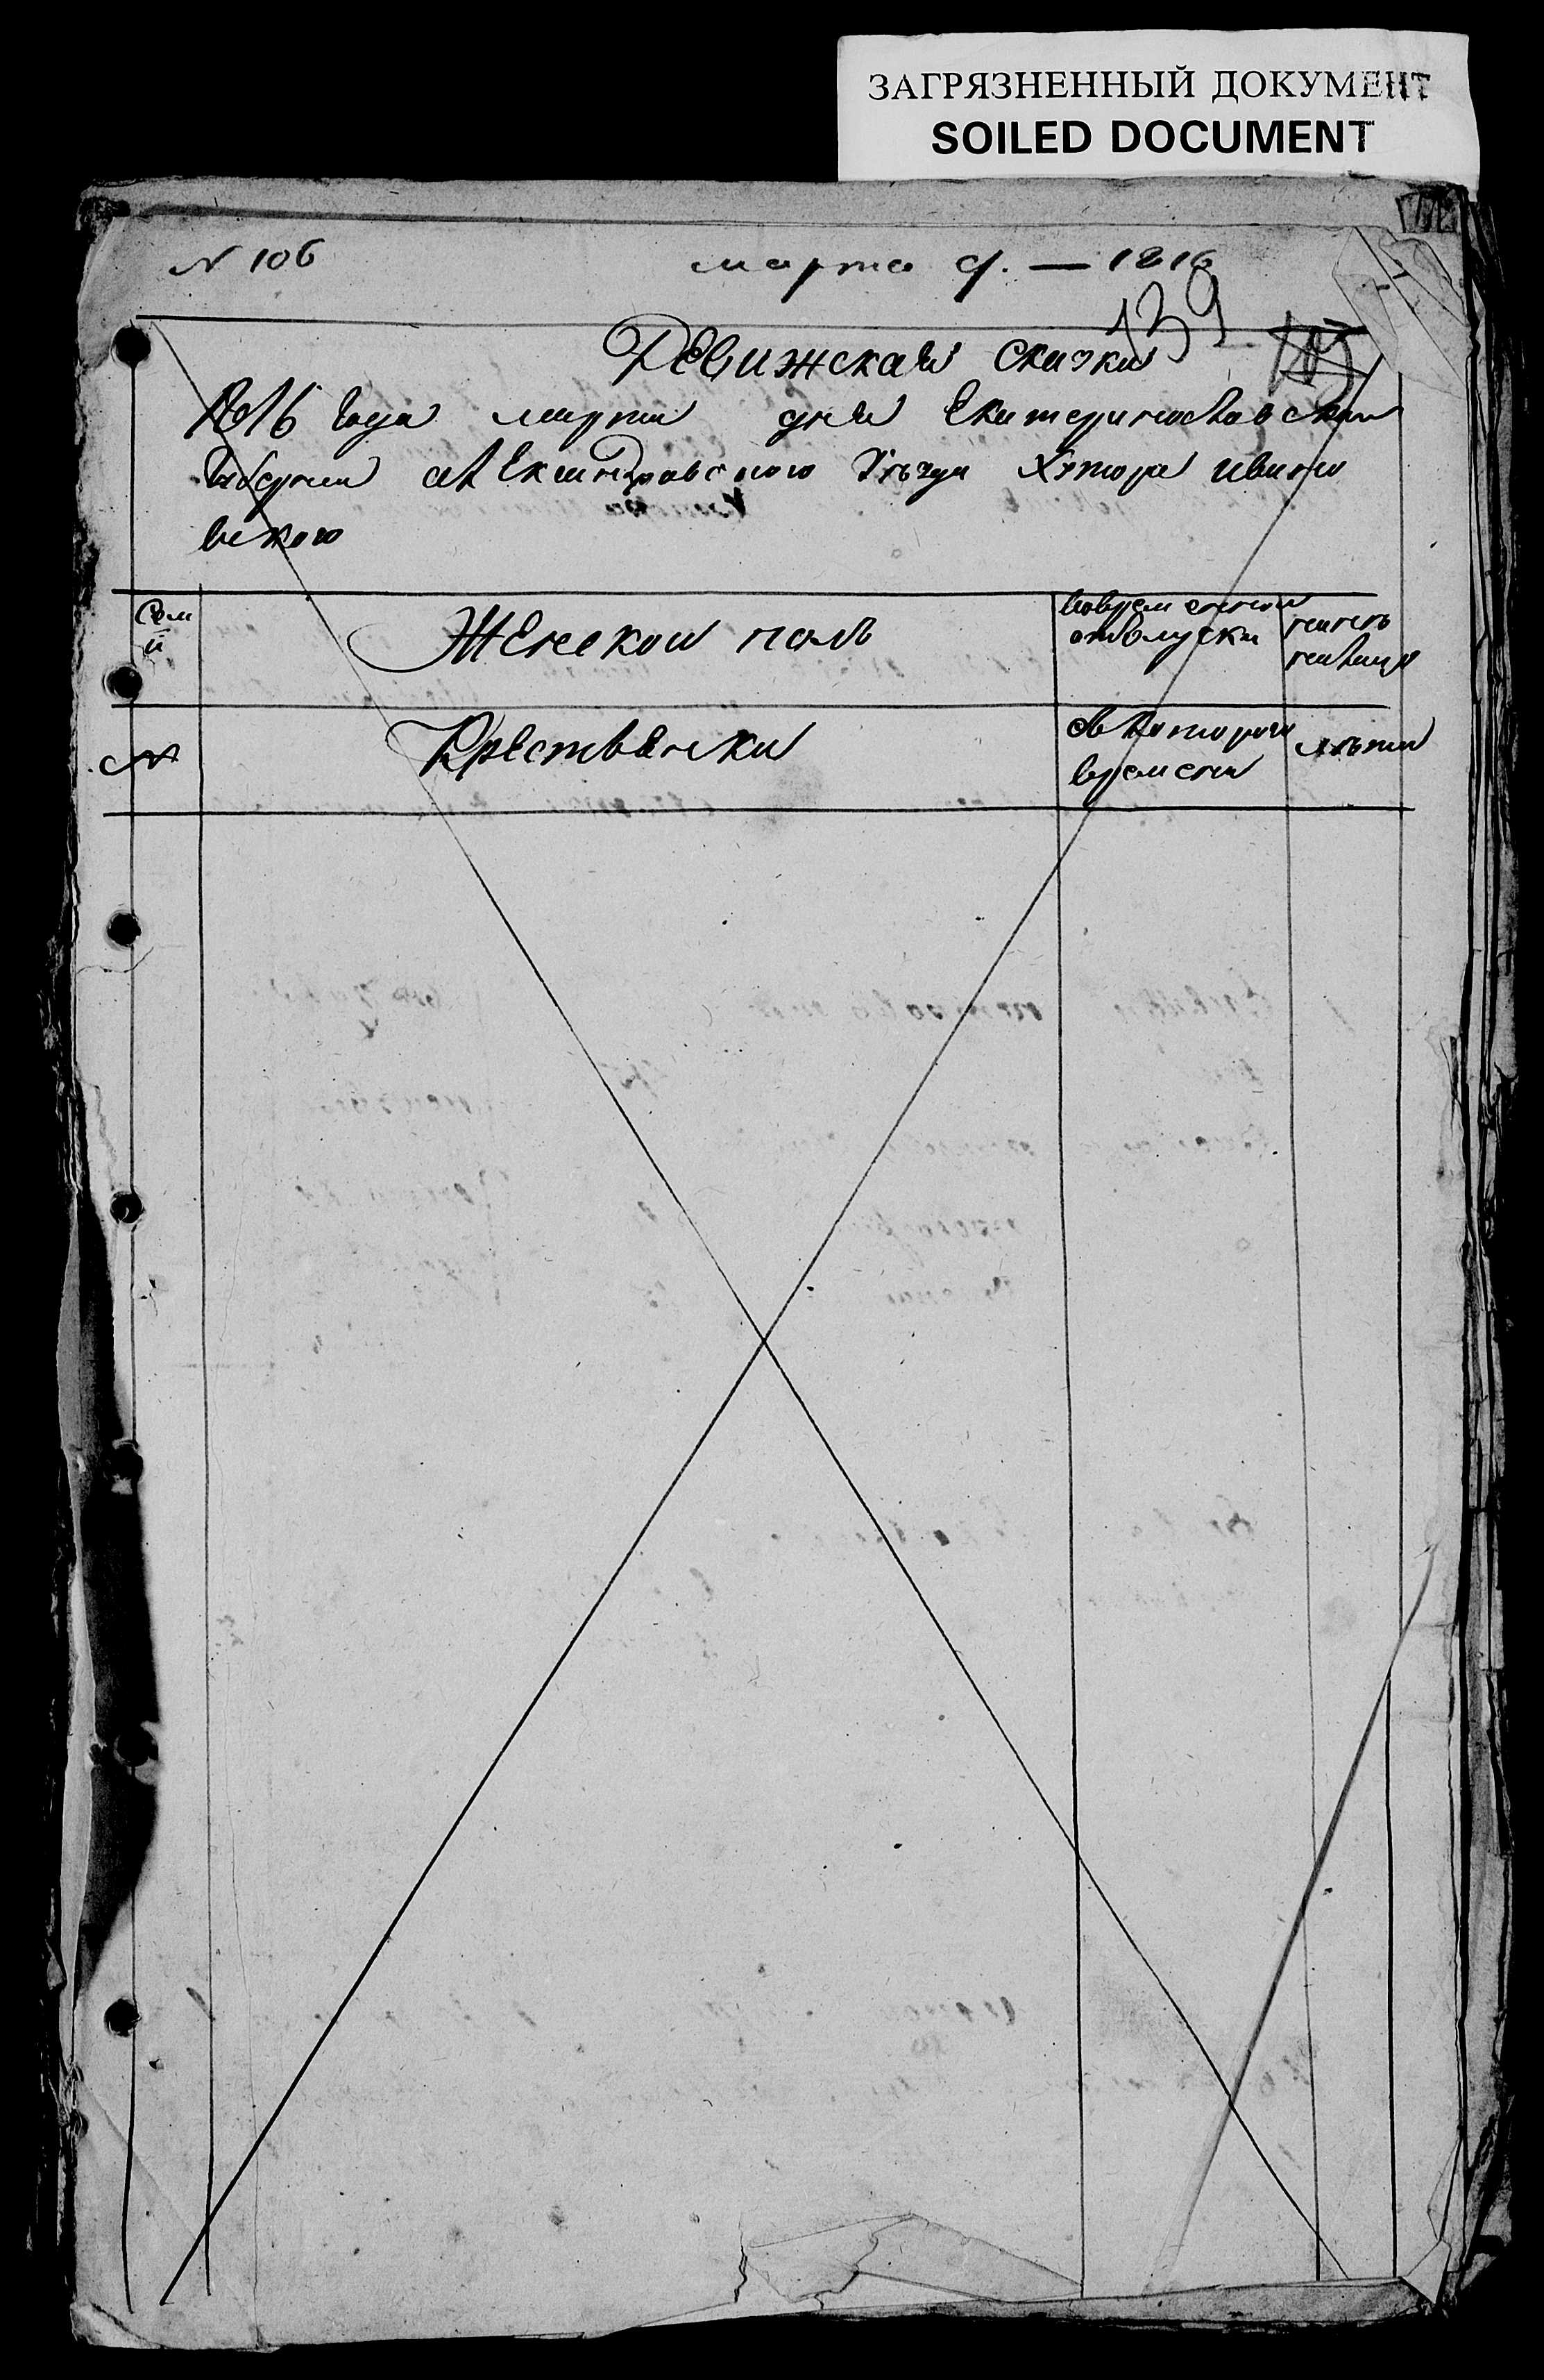 ЗАГРЯЗНЕННЫЙ ДОКУМЕНТ
SOILED DOCUMENT
N 106 марта 9. — 1816
139
Ревижская Скаска
1816 Года марта дня Екатеринославской
Губернии алЕксандровского Уъзда Хутора ивано
вского
Сем
й
ЖЕнской полъ
вовременной
отълучки
нынъ
налицо
N
КрЕстьянки
съ которого
времени
лъта